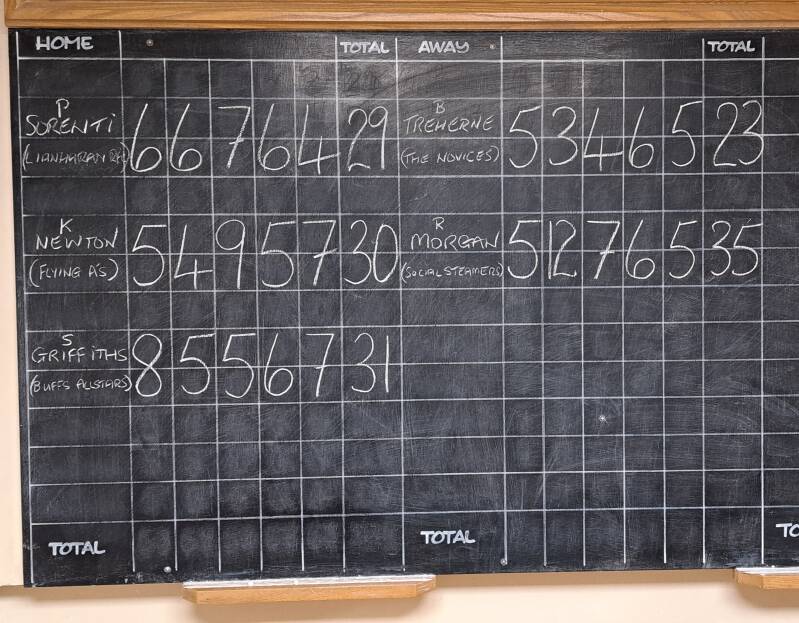 HOME TOTAL AWAY TOTAL
P B
SORENTI 6 6 7 6 4 29 TREHERNE 5 3 4 6 5 23
(THE NOVICES)
K R
NEWTON 5 4 9 5 7 30 MORGAN 5 12 7 6 5 35
(FLYING A'S) (SOCIAL STEAMERS)
S
GRIFFITHS 8 5 5 6 7 31
(BUFFS ALLSTARS)
TOTAL TOTAL